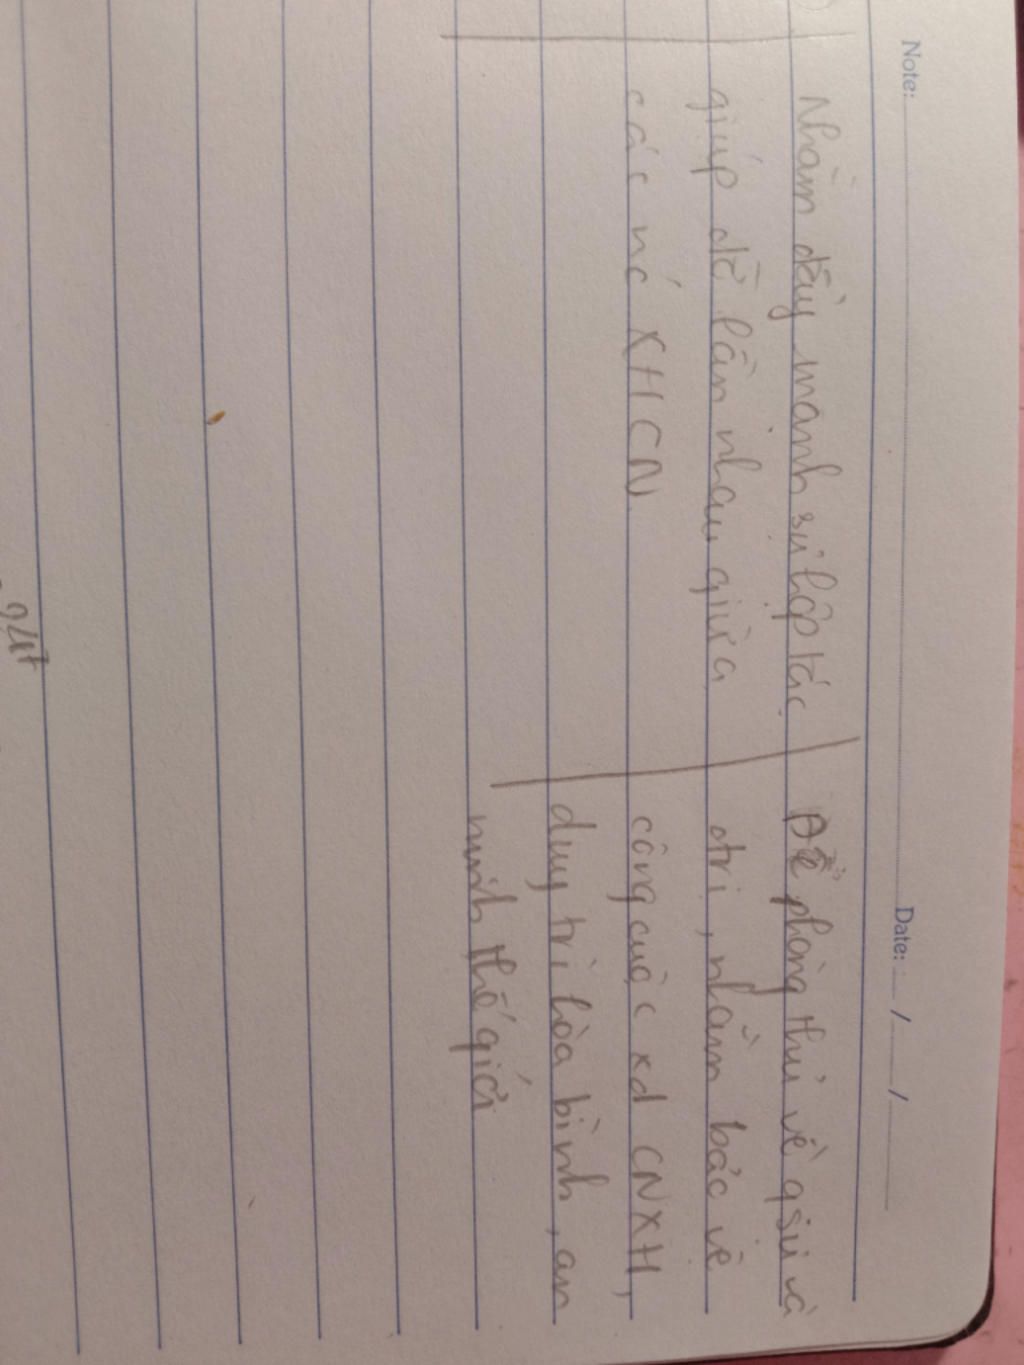 Note:
Date: / /
Nhằm đẩy mạnh sự hợp tác
giúp đỡ lẫn nhau giữa
các nć XHCN
Để phòng thủ về qsự và
ctrị, nhằm bảo vệ
công cuộc xd CNXH,
duy trì hòa bình, an
ninh thế giới